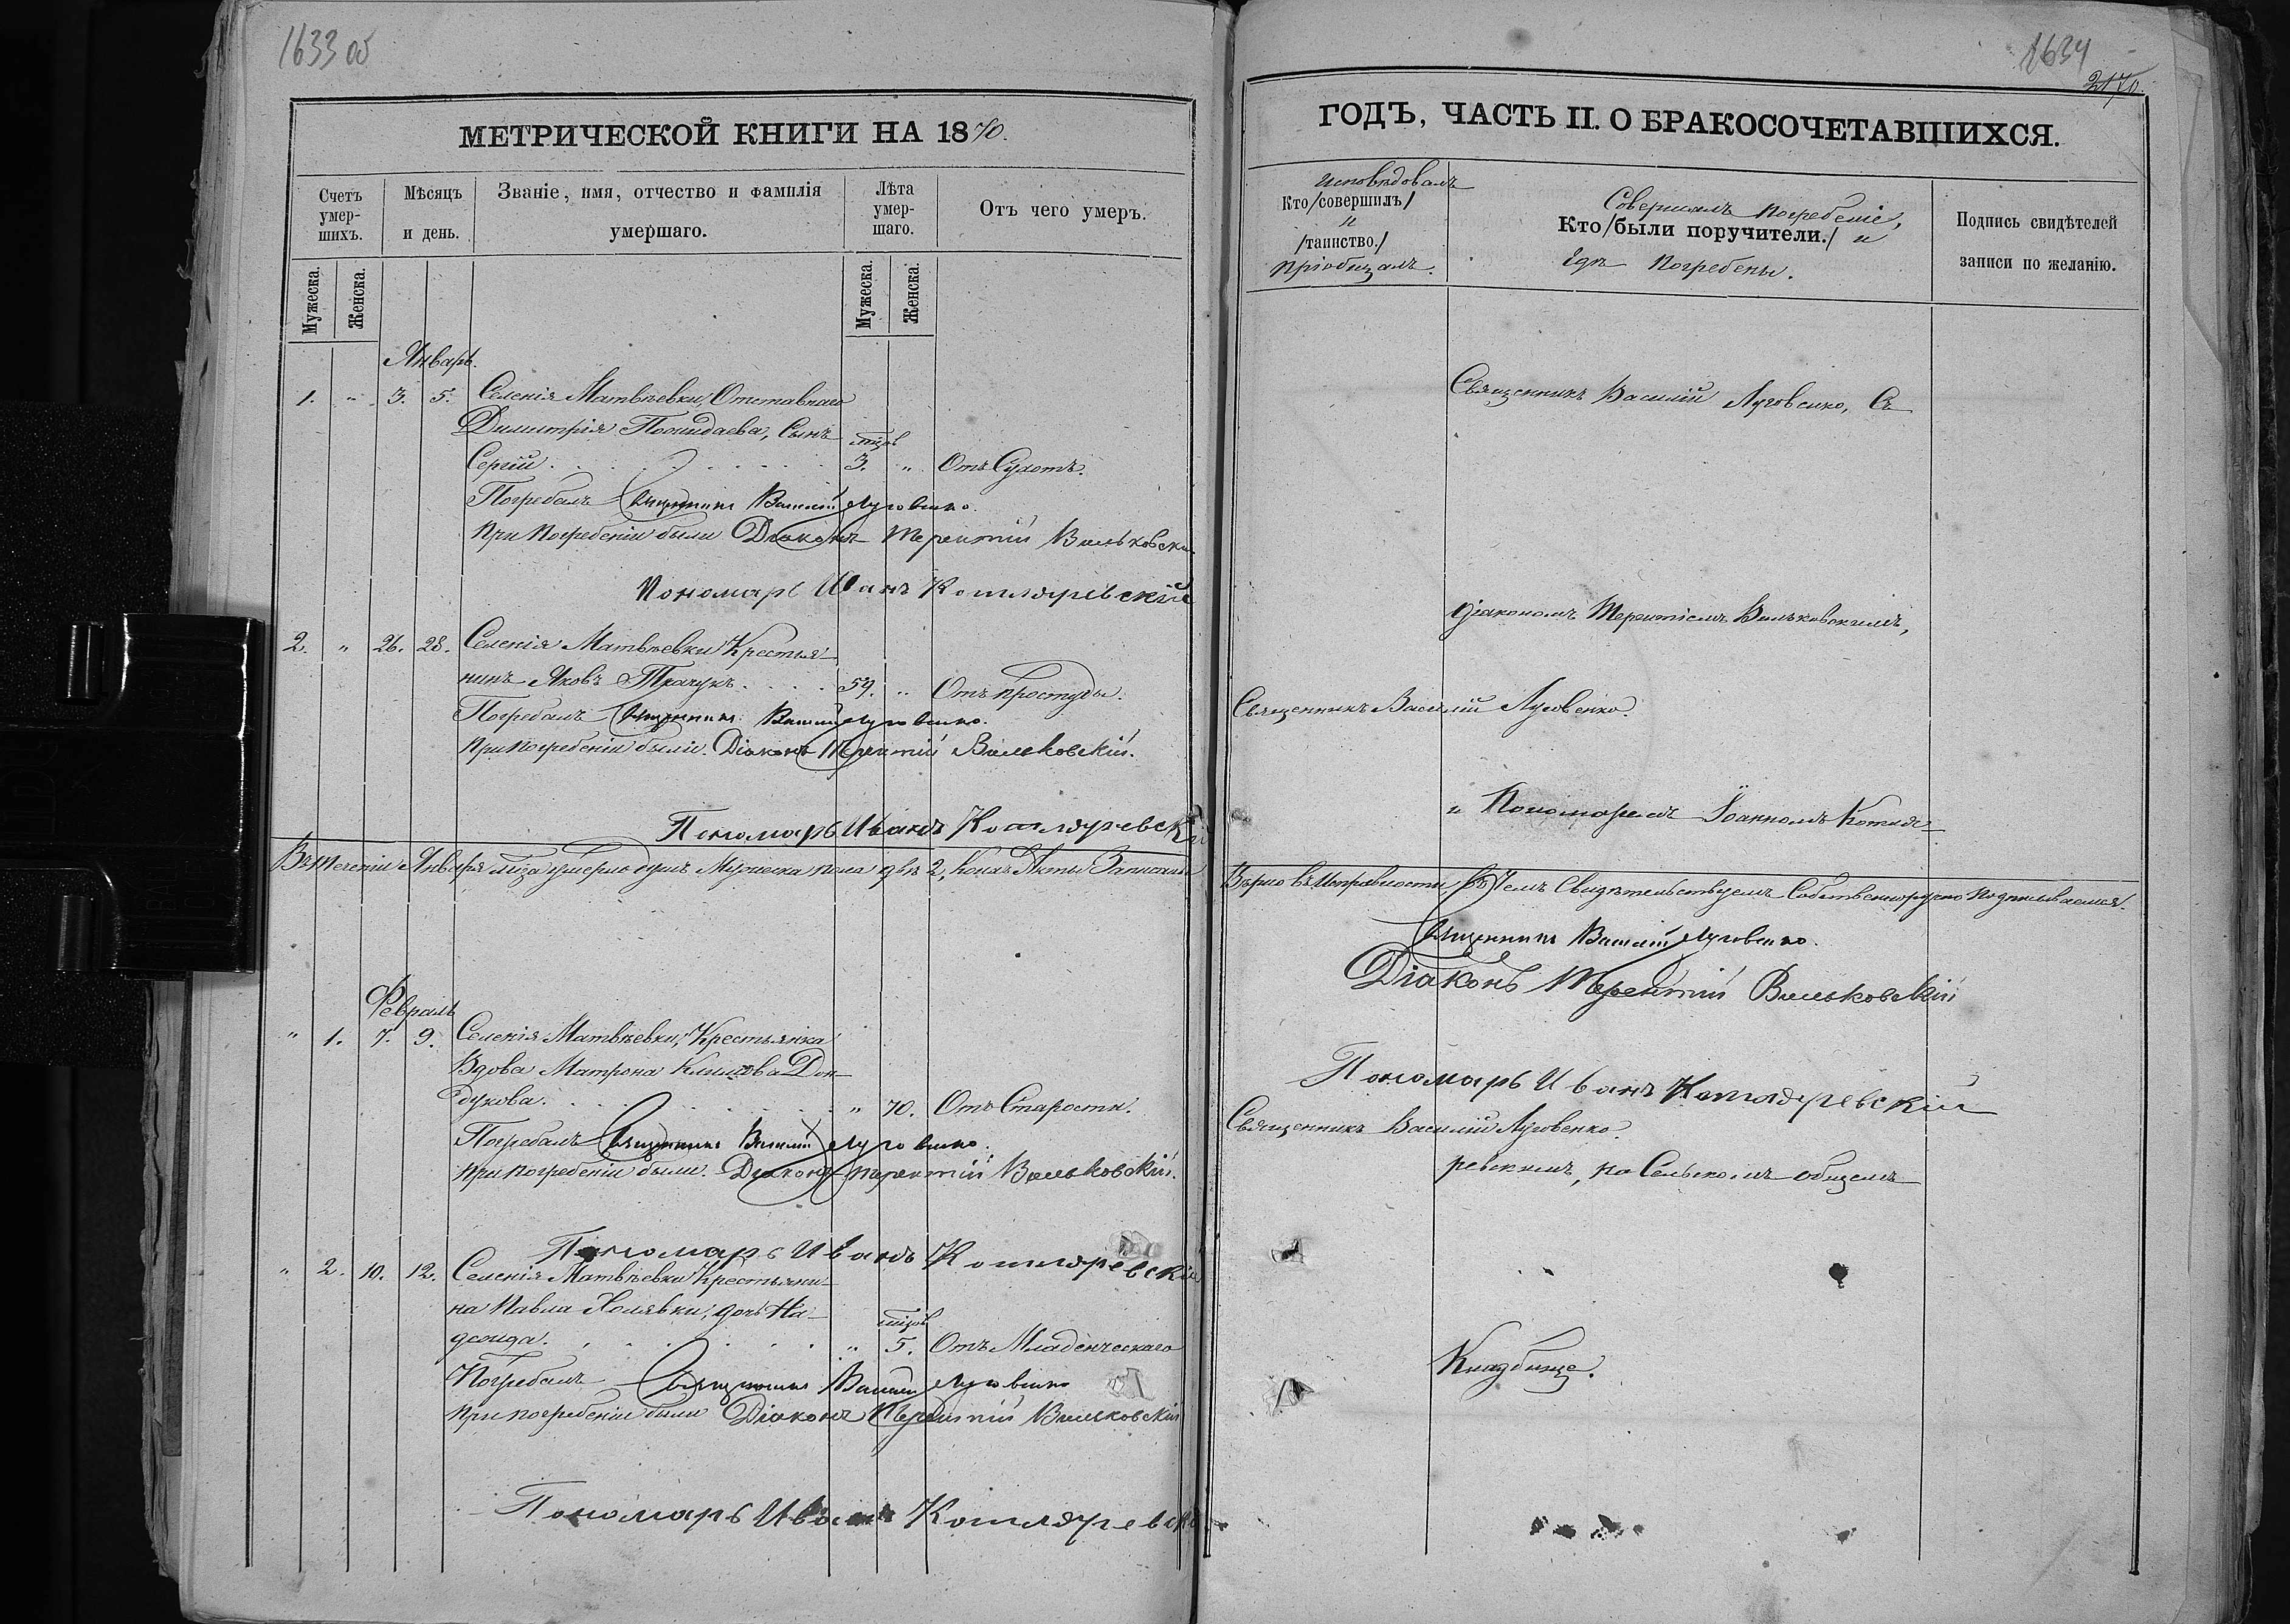 1633 об
МЕТРИЧЕСКОЙ КНИГИ НА 1870.
Счетъ умер-шихъ.
Мѣсяцъ и день.
Званіе, имя, отчество и фамилія умершаго.
Лѣта умер-шаго.
Отъ чего умеръ.
Мужеска.
Женска.
Мужеска.
Женска.
Январь.
1. " 3. 5. Селенія Матвѣевки, Отставнаго
Димитрія, Сынъ
Сергій 3. " Отъ Сухотъ.
Погребалъ Священникъ Василій Луговенко.
При погребеніи были Діаконъ Терентій Вильковскій
Пономарь Иванъ Котляревскій
2. " 26. 28. Селенія Матвѣевки Крестья-
нинъ Яковъ Ткачукъ 59. " Отъ простуды.
Погребалъ Священникъ Василій Луговенко.
При погребеніи были. Діаконъ Терентій Вильковскій.
Пономарь Иванъ Котляревскій
Въ теченіи Января мѣсяца умерло душъ Мужеска пола двѣ 2, коихъ Акты Записаны
Февраль
" 1. 7. 9. Селенія Матвѣевки, Крестьянка
Вдова Матрона Климова Дон-
дукова. " 70. Отъ Старости.
Погребалъ Священникъ Василій Луговенко.
При погребеніи были. Діаконъ Терентій Вильковскій.
Пономарь Иванъ Котляревскій
" 2. 10. 12. Селенія Матвѣевки Крестьяни-
на Павла Холявки, дочь На-
дежда. " 5. Отъ Младенческаго
Погребалъ Священникъ Василій Луговенко
При погребеніи были Діаконъ Терентій Вильковскій
Пономарь Иванъ Котляревскій
1634
2170.
ГОДЪ, ЧАСТЬ II. О БРАКОСОЧЕТАВШИХСЯ.
Исповѣдовалъ
Кто /совершилъ/
и
/таинство./
пріобщалъ.
Совершалъ погребеніе,
Кто /были поручители./ и
гдѣ погребены.
Подпись свидѣтелей
записи по желанію.
Священникъ Василій Луговенко, Съ
Діакономъ Терентіемъ Вильковскимъ,
Священникъ Василій Луговенко.
и Пономаремъ Іоанномъ Котля-
Вѣрно въ Исправности, въ Чемъ Свидѣтельствуемъ Собственноручно подписываемся.
Священникъ Василій Луговенко.
Діаконъ Терентій Вильковскій
Пономарь Иванъ Котляревскій
Священникъ Василій Луговенко.
ревскимъ, на Сельскомъ общемъ
Кладбище.